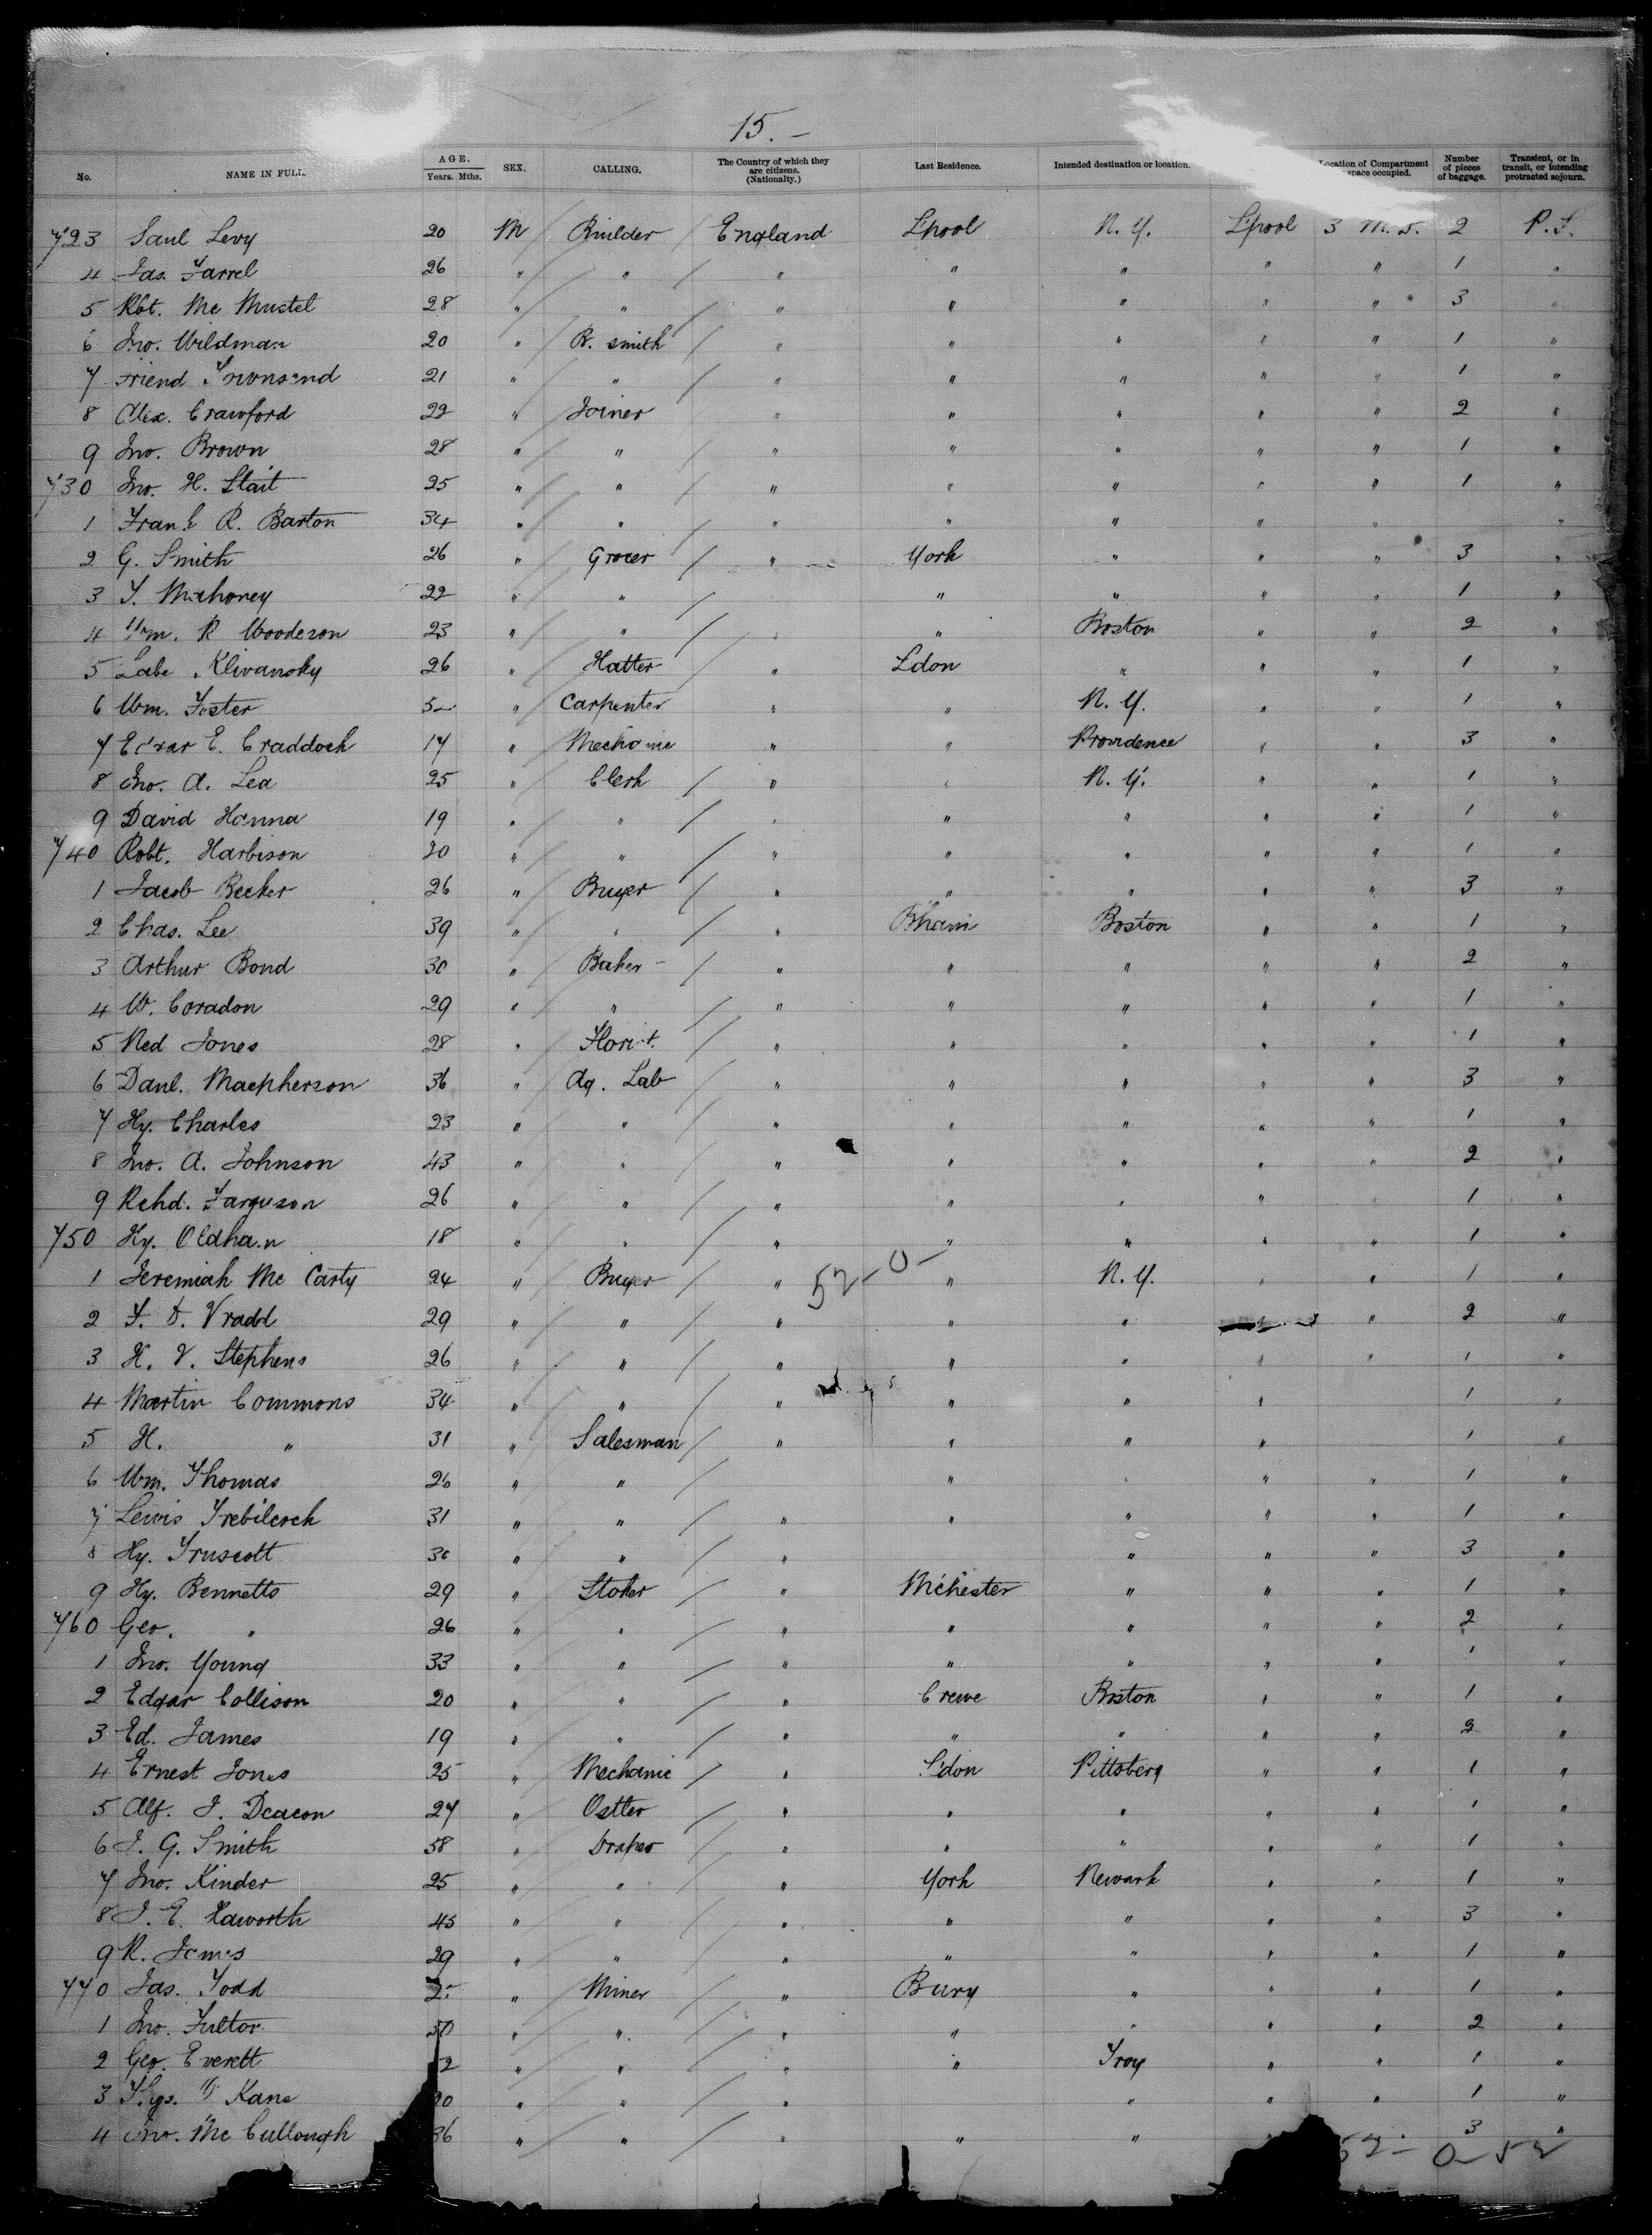 15. –
No. NAME IN FULL. AGE. Years. Mths. SEX. CALLING. The Country of which they are citizens. (Nationalty.) Last Residence. Intended destination or location. Location of Compartment space occupied. Number of pieces of baggage. Transient, or in transit, or intending protracted sojourn.
723 Saul Levy 20 M Builder England L'pool N. Y. L'pool 3 M. D. 2 P. S.
4 Jas. Farrel 26 " " " " " " " 1 "
5 Rbt. Mc Mustel 28 " " " " " " " 3
6 Jno. Wildman 20 " B. smith " " " " " 1 "
7 Friend Townsend 21 " " " " " " " 1 "
8 Alex. Crawford 22 " Joiner " " " " " 2 "
9 Jno. Brown 28 " " " " " " " 1 "
730 Jno. H. Stait 25 " " " " " " " 1 "
1 Frank R. Barton 34 " " " " " " " "
2 G. Smith 26 " Grocer " York " " " 3 "
3 T. Mahoney 22 " " " " " " 1 "
4 Wm. R Woodeson 23 " " " " Boston " " 2 "
5 Labe Klivansky 26 " Hatter " Ldon " " " 1 "
6 Wm. Foster " Carpenter " " N. Y. " " 1 "
7 Edgar E. Craddock 17 " Mechanic " " Providence " " 3 "
8 Jno. A. Lea 25 " Clerk " " N. Y. " " 1 "
9 David Hanna 19 " " " " " " " 1 "
740 Robt. Harbison 20 " " " " " " " 1 "
1 Jacob Becker 26 " Buyer " " " " " 3 "
2 Chas. Lee 39 " " " B'ham Boston " " 1 "
3 Arthur Bond 30 " Baker " " " " " 2 "
4 W. Coradon 29 " " " " " " " 1 "
5 Ned Jones 28 " Florist " " " " " 1 "
6 Danl. Macpherson 36 " Ag. Lab " " " " " 3 "
7 Hy. Charles 23 " " " " " " " 1 "
8 Jno. A. Johnson 43 " " " " " " " 2 "
9 Rchd. Farguson 26 " " " " " " 1 "
750 Hy. Oldham 18 " " " " " " " 1 "
1 Jeremiah Mc Carty 24 " Buyer " 52–0– " N. Y. " " 1 "
2 F. D. Vradd 29 " " " " " " 2 "
3 H. V. Stephens 26 " " " " " " " 1 "
4 Martin Commons 34 " " " " " " 1 "
5 H. " 31 " Salesman " " " " 1 "
6 Wm. Thomas 26 " " " " " " 1 "
7 Lewis Trebilcock 31 " " " " " " " 1 "
8 Hy. Truscott 30 " " " " " " 3 "
9 Hy. Bennetts 29 " Stoker " M'chester " " " 1 "
760 Geo. " 26 " " " " " " " 2 "
1 Jno. Young 33 " " " " " " " 1 "
2 Edgar Collison 20 " " " Crewe Boston " " 1 "
3 Ed. James 19 " " " " " " " 2 "
4 Ernest Jones 25 " Mechanic " L'don Pittsberg " " 1 "
5 Alf. J. Deacon 27 " Ostler " " " " " 1 "
6 J. G. Smith 58 " Draper " " " " " 1 "
7 Jno. Kinder 25 " " " York Newark " " 1 "
8 J. E. Haworth 45 " " " " " " " 3 "
9 R. James 29 " " " " " " " 1 "
770 Jas. Todd " Miner " Bury " " " 1 "
1 Jno. Fulton 30 " " " " " " " 2 "
2 Geo. Everett " " " " Troy " " 1 "
3 Kane " " " " " " 1 "
4 Jno. Mc Cullough 36 " " " " " " 3 "
52– 0–52